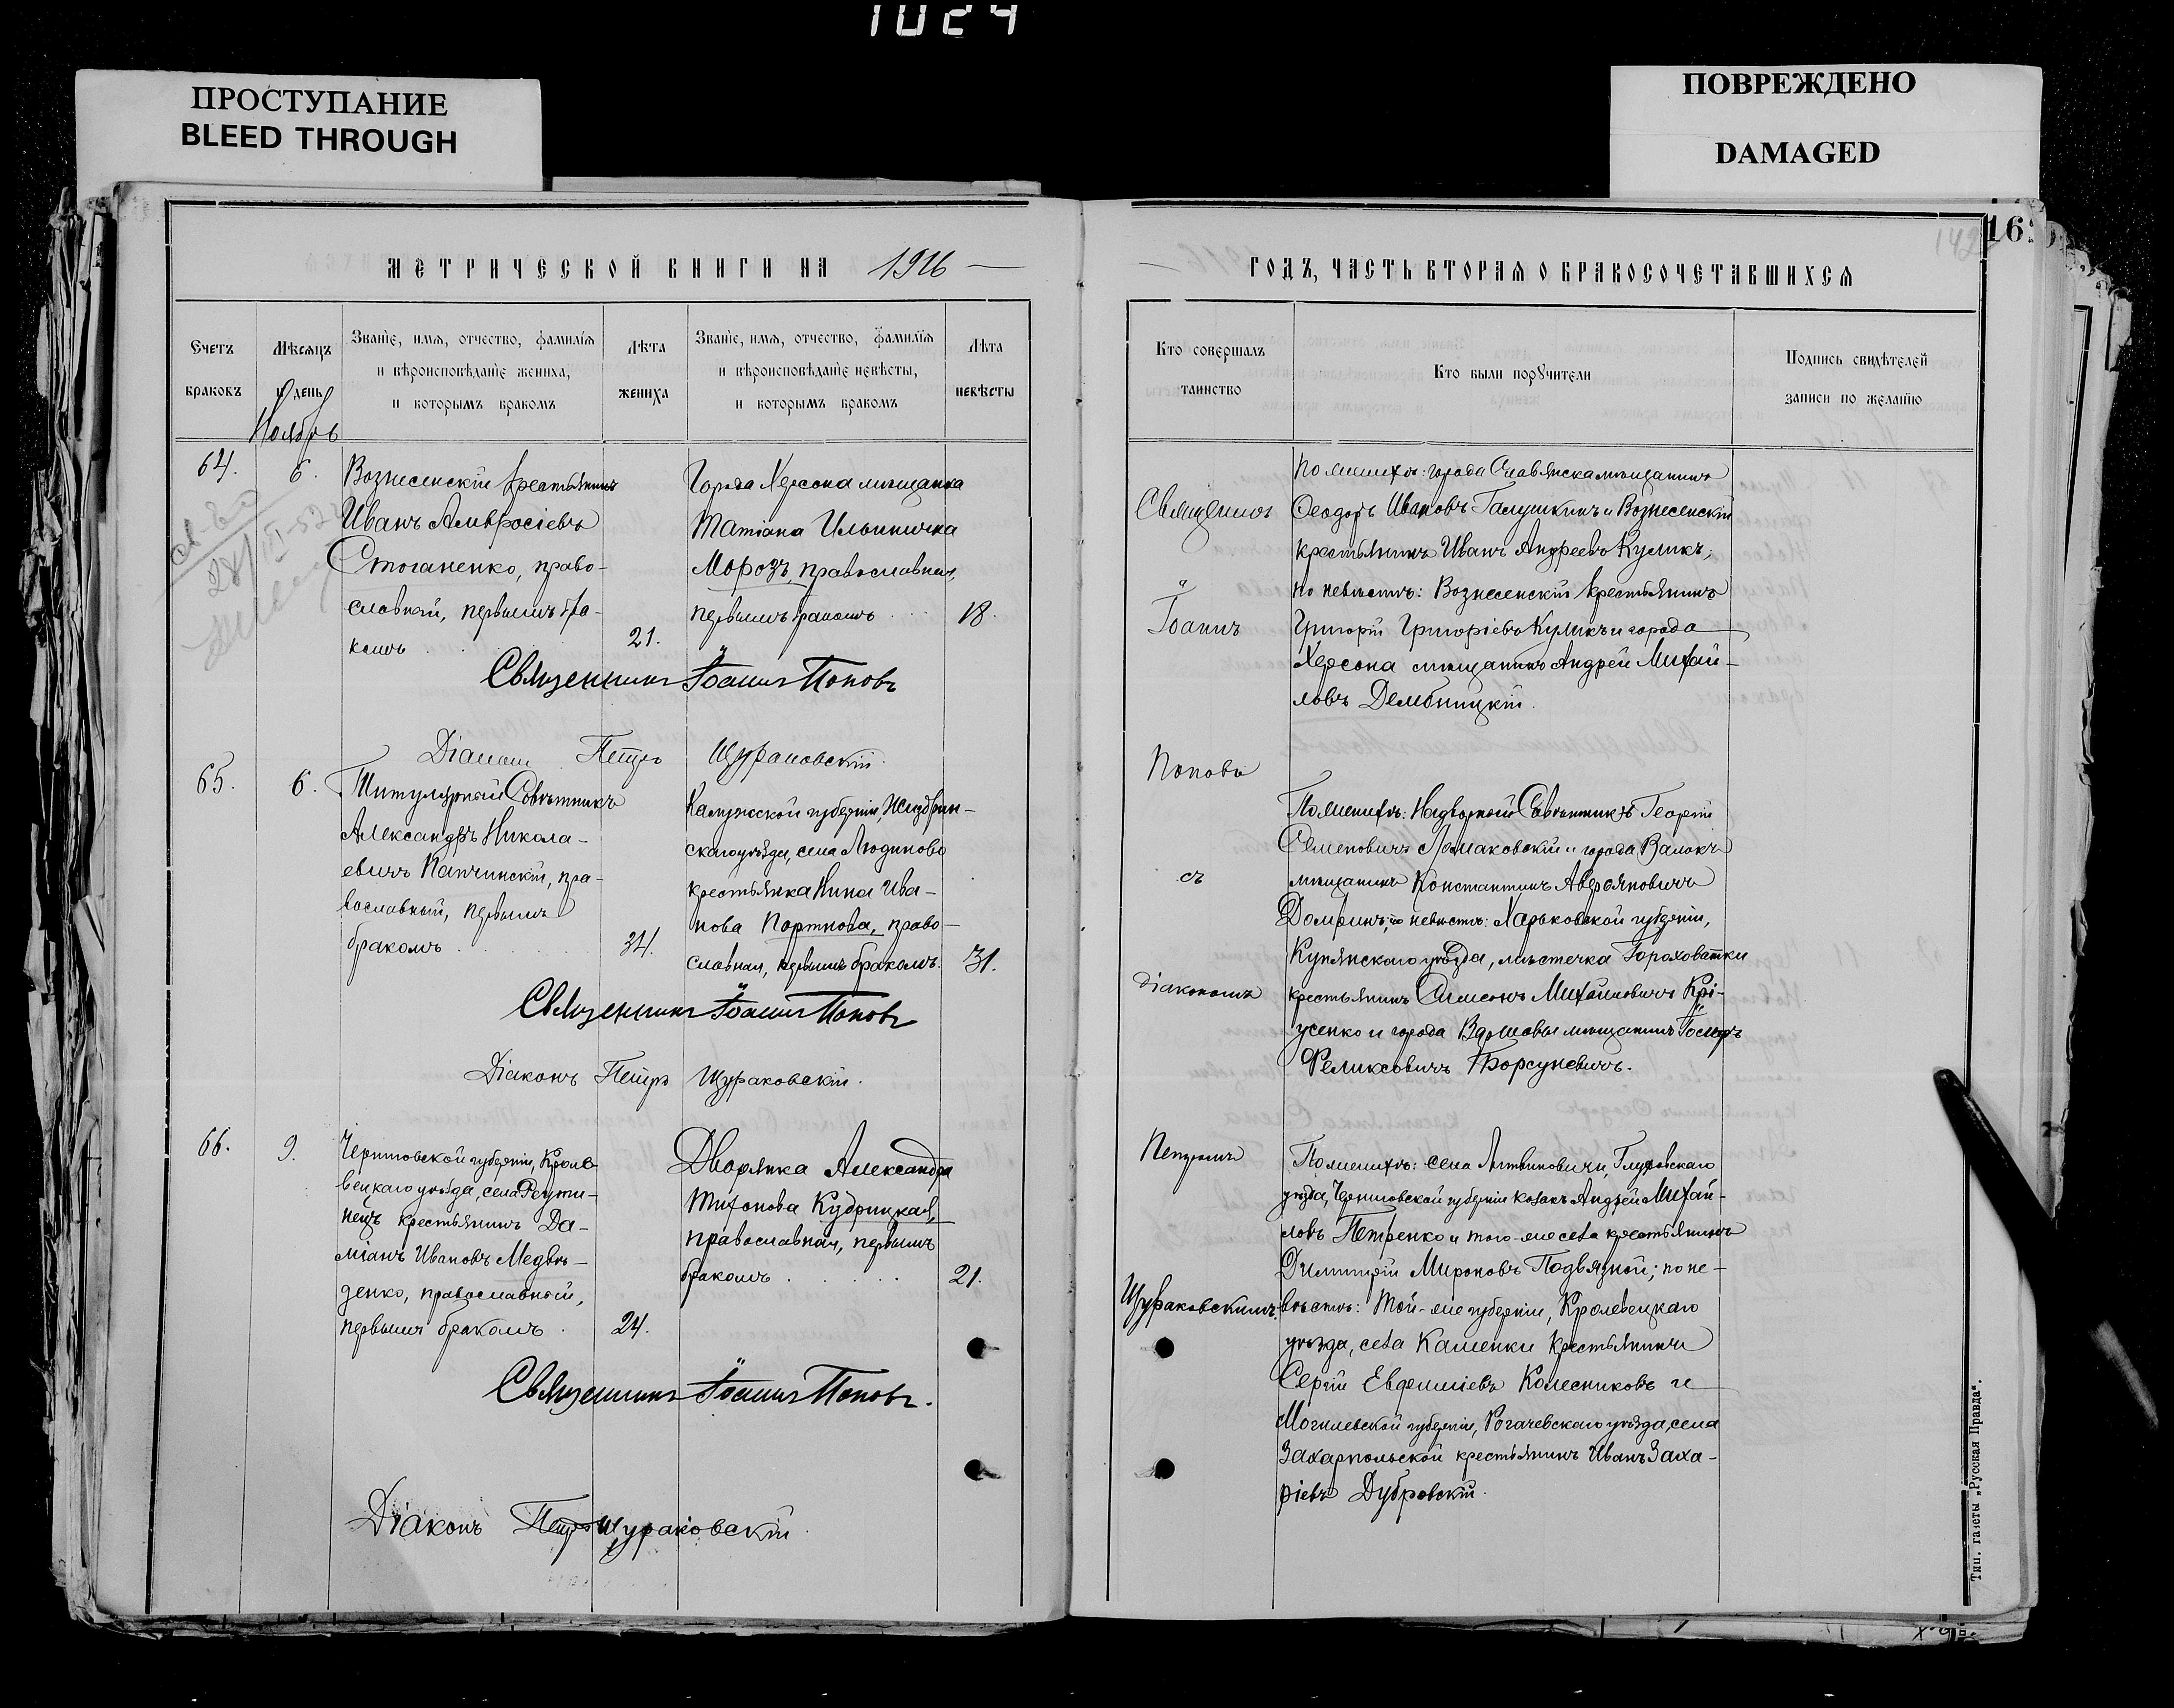 1024
ПРОСТУПАНИЕ
BLEED THROUGH
ПОВРЕЖДЕНО
DAMAGED
МЕТРИЧЕСКОЙ КНИГИ НА 1916
Счетъ браковъ
Мѣсяцъ и день
Званіе, имя, отчество, фамилія
и вѣроисповѣданіе жениха,
и которымъ бракомъ
Лѣта жениха
Званіе, имя, отчество, фамилія
и вѣроисповѣданіе невѣсты,
и которымъ бракомъ
Лѣта невѣсты
Ноябрь
64.
6.
Вознесенскій крестьянинъ
Иванъ Амвросіевъ
Стоганенко, право-
славный, первымъ бра-
комъ
21.
Города Херсона мѣщанка
Татіана Ильинична
Морозъ, православная,
первымъ бракомъ
18.
Священникъ Іоаннъ Поповъ
Діаконъ Петръ Щураковскій
65.
6.
Титулярный Совѣтникъ
Александръ Никола-
евичъ Папчинскій, пра-
вославный, первымъ
бракомъ
34.
Калужской губерніи, Жиздрин-
скаго уѣзда, села Людиново
крестьянка Нина Ива-
нова Портнова, право-
славная, первымъ бракомъ.
31.
Священникъ Іоаннъ Поповъ
Діаконъ Петръ Щураковскій.
66.
9.
Черниговской губерніи, Кроле-
вецкаго уѣзда, села Реути-
нецъ крестьянинъ Да-
міанъ Ивановъ Медвѣ-
денко, православный,
первымъ бракомъ.
24.
Дворянка Александра
Тихонова Кудрицкая,
православная, первымъ
бракомъ
21.
Священникъ Іоаннъ Поповъ.
Діаконъ Петръ Щураковскій.
16
ГОДЪ, ЧАСТЬ ВТОРАЯ О БРАКОСОЧЕТАВШИХСЯ
Кто совершалъ
таинство
Кто были поручители
Подпись свидѣтелей
записи по желанію
Священникъ
Іоаннъ
Поповъ
съ
діакономъ
Петромъ
Щураковскимъ.
По женихѣ: города Славянска мѣщанинъ
Феодоръ Ивановъ Галушкинъ и Вознесенскій
крестьянинъ Иванъ Андреевъ Куликъ;
по невѣстѣ: Вознесенскій крестьянинъ
Григорій Григоріевъ Куликъ и города
Херсона мѣщанинъ Андрей Михай-
ловъ Дембицкій.
По женихѣ: Надворный Совѣтникъ Георгій
Семеновичъ Ломаковскій и города Валокъ
мѣщанинъ Константинъ Аверьяновичъ
Домринъ; по невѣстѣ: Харьковской губерніи,
Купянскаго уѣзда, мѣстечка Гороховатки
крестьянинъ Симеонъ Михайловичъ Крі-
усенко и города Варшавы мѣщанинъ Іосифъ
Феликсовичъ Борсуневичъ.
По женихѣ: села Литвиновичи, Глуховскаго
уѣзда, Черниговской губерніи козакъ Андрей Михай-
ловъ Петренко и того-же села крестьянинъ
Димитрій Мироновъ Подвязной; по не-
вѣстѣ: той-же губерніи, Кролевецкаго
уѣзда, села Каменки крестьянинъ
Сергій Евфиміевъ Колесниковъ и
Могилевской губерніи, Рогачевскаго уѣзда, села
Захарпольской крестьянинъ Иванъ Заха-
ріевъ Дубровскій.
Тип. газеты „Русская Правда“.